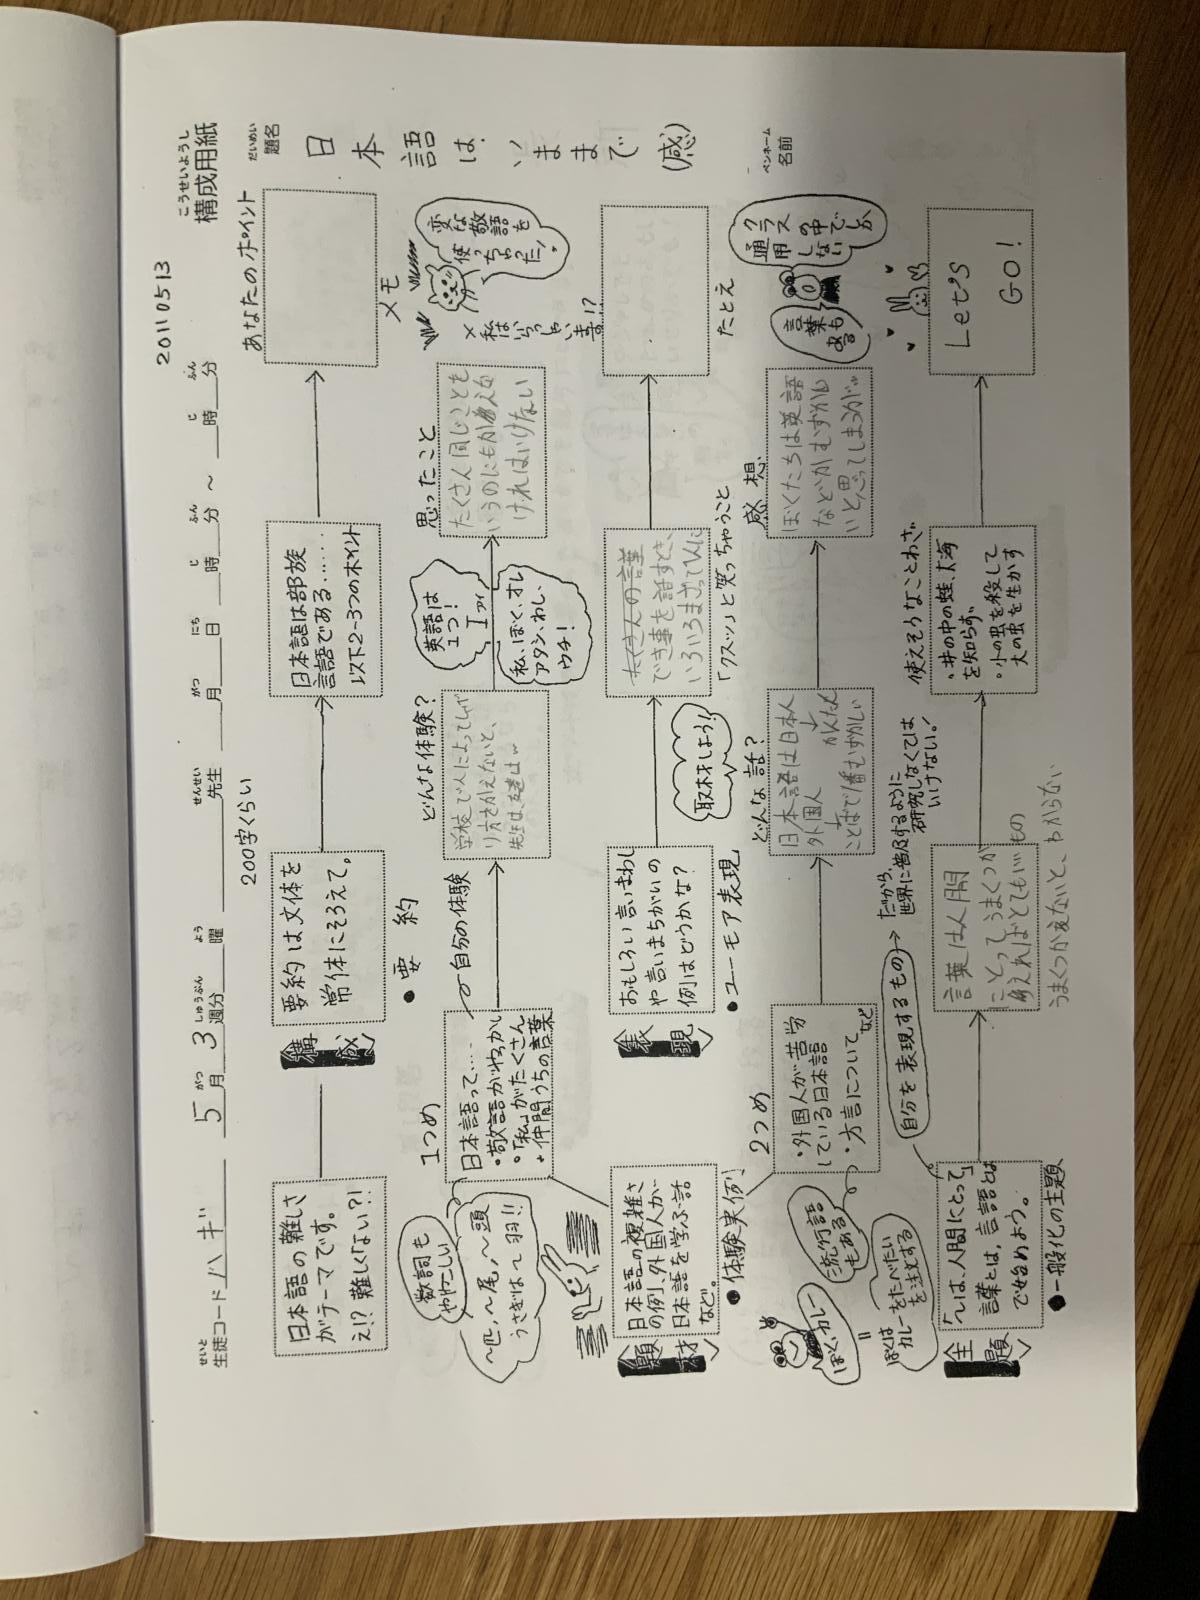 20110513
こうせいようし
構成用紙
せいと
生徒コード ハギ
5月3週分 曜 先生 月 日 時 分 ～ 時 分
がつ しゅうぶん よう せんせい がつ にち じ ふん じ ふん
だいめい
題名
日本語は、いままで(感)
ペンネーム
名前
日本語の難しさ
がテーマです。
え!? 難しくない?!
構成
要約は文体を
常体にそろえて。
●要約
200字くらい
日本語は部族
言語である……
以下2-3つのポイント
あなたのポイント
メモ
数詞も
ややこしい
～匹、～尾、～頭
うさぎは～羽!!
1つめ
日本語って….
・敬語がやっかい
・「私」がたくさん
・仲間うちの言葉
自分の体験
どんな体験?
学校で人によってしゃべ
り方をかえないと、
英語は
1つ!
I アイ
私、ぼく、オレ
アタシ、わし、
ウチ!
思ったこと
たくさん同じことを
いうのにもかんがえな
ければいけない
変な敬語を
使っちゃった!
×私は
いらっしゃい
ます!?
題材
日本語の複雑さ
の例、外国人が
日本語を学ぶ話
など。
●体験実例
表現
おもしろい言いまわし
や言いまちがいの
例はどうかな?
●ユーモア表現
取材しよう!
たくさんの謹
でき事を話すとき、
「クスッ」と笑っちゃうこと
たとえ
2つめ
・外国人が苦労
している日本語
・方言について
など
流行語
もある
ぼく、カレー
॥
ぼくは
カレーをたべたい
を注文する
どんな話?
日本語は日本人
かんたん
外国人
ことばで1番むずかしい
感想
ぼくたちは英語
などがむずかし
いと思ってしまうが…
クラス
の中でしか
通用
しない
言葉も
ある
主題
「～は、人間にとって」
言葉とは、言語とは
で始めよう。
●一般化の主題
自分を表現するもの
だから、
世界に普及するように
研究しなくては
いけない!
言葉は人間
にとってうまくつか
えればとてもいいもの
うまくつかえないと、わからない
使えそうなことわざ
・井の中の蛙、大海
を知らず。
・小の虫を殺して
大の虫を生かす
Let's
GO!